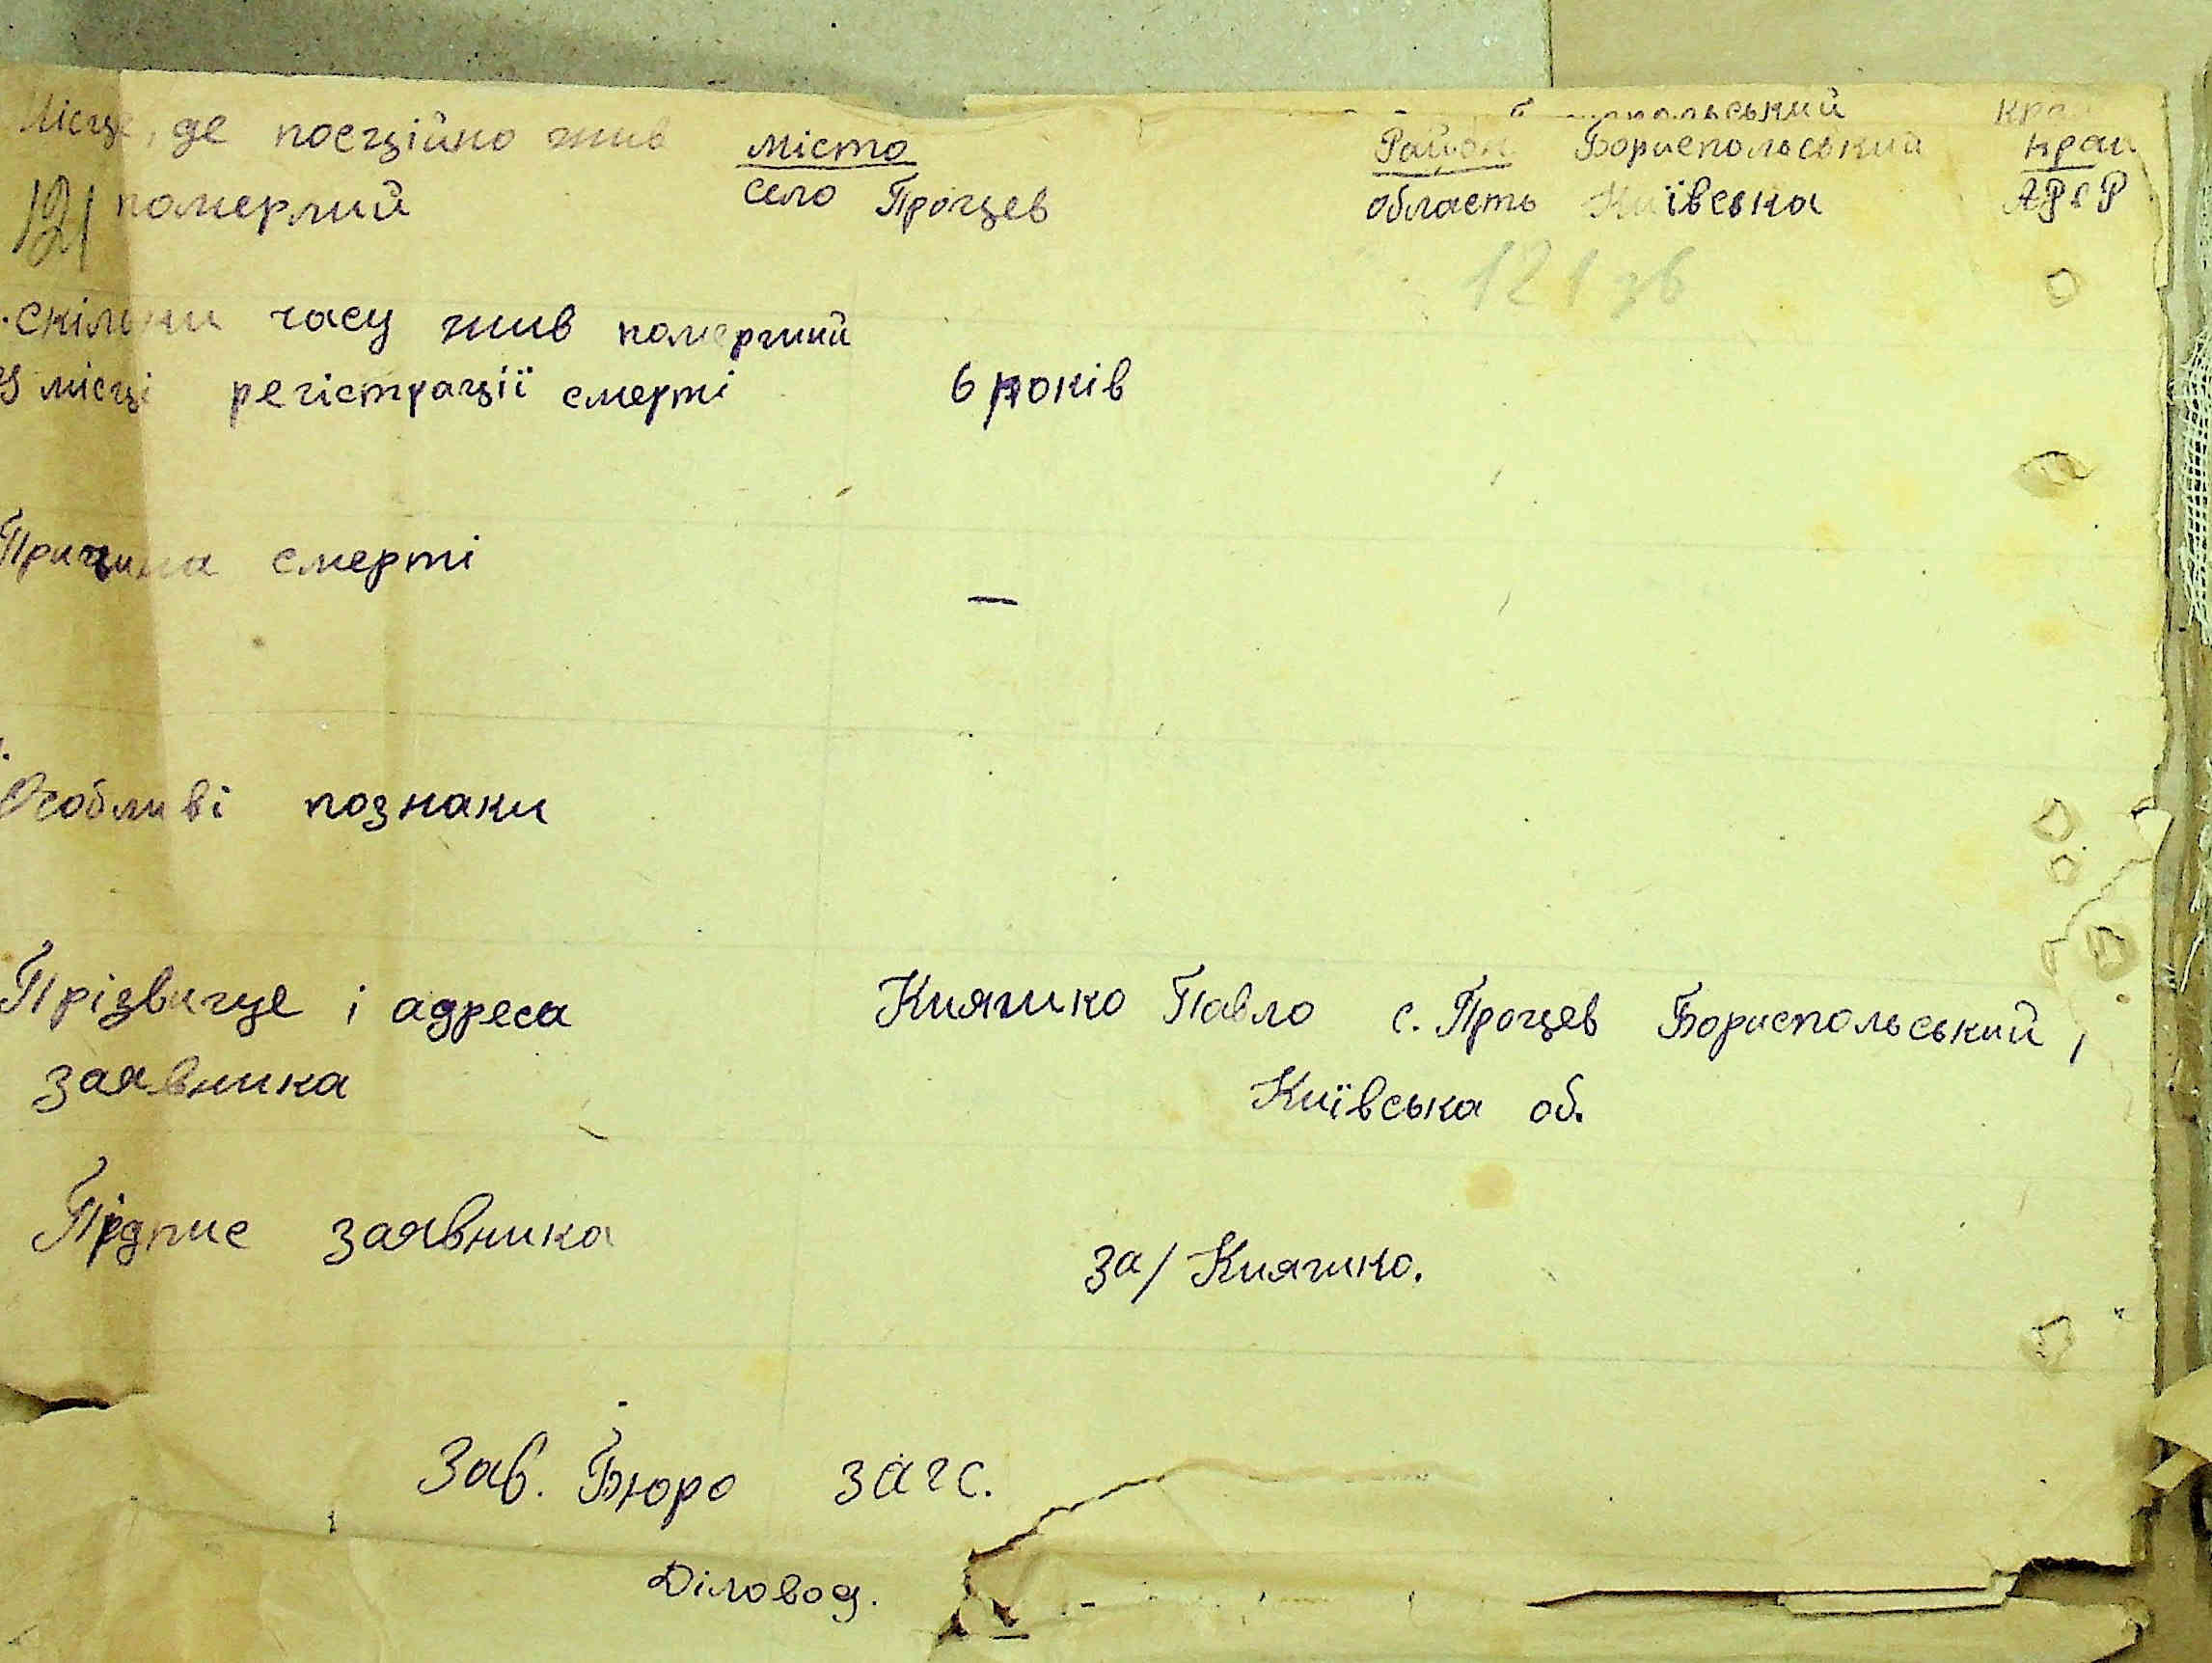 польський
Місце, де посційно жив місто Район Бориспольський край
121 померлий село Процев область Київська АРСР
121 зв
скільки часу жив померший
У місці регістрації смерті 6 років
Причина смерті —
Особливі познаки
Прізвище і адреса Княшко Павло с. Процев Бориспольський,
заявника Київська об.
Підпис заявника за/ Княшко.
Зав. Бюро ЗАГС.
Діловод.